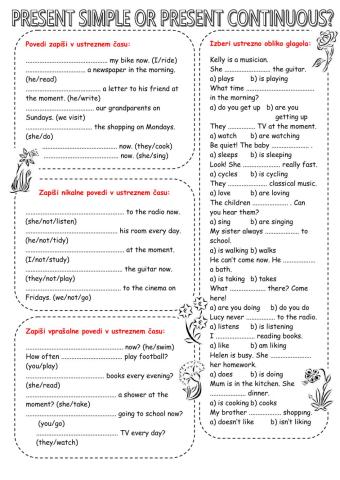 PRESENT SIMPLE OR PRESENT CONTINUOUS?
Povedi zapiši v ustreznem času:
.............................. my bike now. (I/ride)
...................... a newspaper in the morning.
(he/read)
.............................. a letter to his friend at
the moment. (he/write)
........................ our grandparents on
Sundays. (we visit)
........................ the shopping on Mondays.
(she/do)
.............................. now. (they/cook)
.............................. now. (she/sing)
Zapiši nikalne povedi v ustreznem času:
.................................... to the radio now.
(she/not/listen)
.................................. his room every day.
(he/not/tidy)
.................................... at the moment.
(I/not/study)
.................................. the guitar now.
(they/not/play)
.................................. to the cinema on
Fridays. (we/not/go)
Zapiši vprašalne povedi v ustreznem času:
.................................... now? (he/swim)
How often ........................ play football?
(you/play)
.............................. books every evening?
(she/read)
.................................. a shower at the
moment? (she/take)
.................................. going to school now?
(you/go)
.............................. TV every day?
(they/watch)
Izberi ustrezno obliko glagola:
Kelly is a musician.
She ........................ the guitar.
a) plays b) is playing
What time ........................
in the morning?
a) do you get up b) are you
getting up
They .............. TV at the moment.
a) watch b) are watching
Be quiet! The baby ............... .
a) sleeps b) is sleeping
Look! She ............... really fast.
a) cycles b) is cycling
They .................. classical music.
a) love b) are loving
The children .............. . Can
you hear them?
a) sing b) are singing
My sister always .................. to
school.
a) is walking b) walks
He can't come now. He ...............
a bath.
a) is taking b) takes
What .................. there? Come
here!
a) are you doing b) do you do
Lucy never ............... to the radio.
a) listens b) is listening
I .................. reading books.
a) like b) am liking
Helen is busy. She ...............
her homework.
a) does b) is doing
Mum is in the kitchen. She
.................. dinner.
a) is cooking b) cooks
My brother ............... shopping.
a) doesn't like b) isn't liking